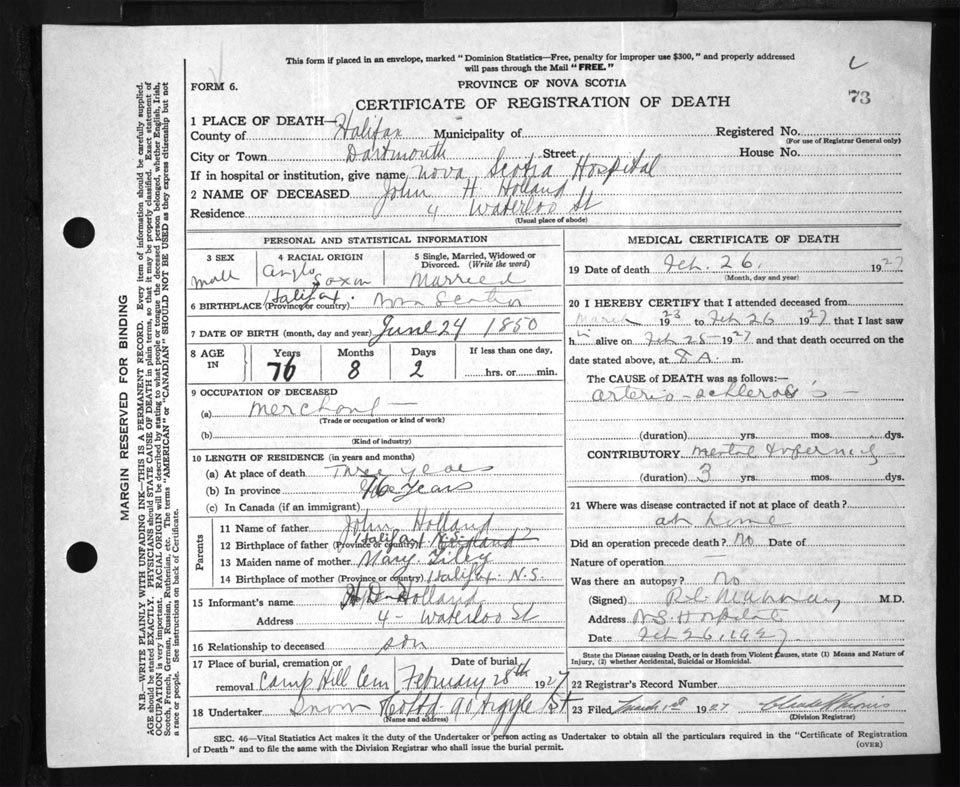 This form if placed in an envelope, marked "Dominion Statistics—Free, penalty for improper use $300," and properly addressed
will pass through the Mail "FREE."
FORM 6.
PROVINCE OF NOVA SCOTIA
73
CERTIFICATE OF REGISTRATION OF DEATH
1 PLACE OF DEATH—
County of Halifax Municipality of Registered No.
(For use of Registrar General only)
City or Town Dartmouth Street House No.
If in hospital or institution, give name Nova Scotia Hospital
2 NAME OF DECEASED John H Holland
Residence 4 Waterloo St
(Usual place of abode)
PERSONAL AND STATISTICAL INFORMATION
3 SEX 4 RACIAL ORIGIN 5 Single, Married, Widowed or Divorced. (Write the word)
male Anglo Saxon Married
6 BIRTHPLACE (Province or country) Halifax. Nova Scotia
7 DATE OF BIRTH (month, day and year) June 24 1850
8 AGE IN Years Months Days If less than one day,
76 8 2 hrs. or min.
9 OCCUPATION OF DECEASED
(a) Merchant
(Trade or occupation or kind of work)
(b)
(Kind of industry)
10 LENGTH OF RESIDENCE (in years and months)
(a) At place of death Three years
(b) In province 76 years
(c) In Canada (if an immigrant)
Parents
11 Name of father John Holland
12 Birthplace of father (Province or country) Halifax N.S.
13 Maiden name of mother Mary
14 Birthplace of mother (Province or country) Halifax N.S.
15 Informant's name H D Holland
Address 4 - Waterloo St
16 Relationship to deceased son
17 Place of burial, cremation or removal Camp Hill Cem Date of burial February 28th 1927
18 Undertaker Snow 90 Argyle St
(Name and address)
MEDICAL CERTIFICATE OF DEATH
19 Date of death Feb. 26. 1927
(Month, day and year)
20 I HEREBY CERTIFY that I attended deceased from
March 1923 to Feb 26 1927 that I last saw
him alive on Feb 25 - 1927 and that death occurred on the
date stated above, at 8 A. m.
The CAUSE of DEATH was as follows:—
arterio-schlerosis
(duration) yrs. mos. dys.
CONTRIBUTORY Mental Infirmity
(duration) 3 yrs. mos. dys.
21 Where was disease contracted if not at place of death?
at home
Did an operation precede death? No Date of
Nature of operation —
Was there an autopsy? No
(Signed) M.D.
Address N.S. Hospital
Date Feb 26, 1927
State the Disease causing Death, or in death from Violent Causes, state (1) Means and Nature of
Injury, (2) whether Accidental, Suicidal or Homicidal.
22 Registrar's Record Number
23 Filed March 1927
(Division Registrar)
SEC. 46—Vital Statistics Act makes it the duty of the Undertaker or person acting as Undertaker to obtain all the particulars required in the "Certificate of Registration
of Death" and to file the same with the Division Registrar who shall issue the burial permit.
(OVER)
MARGIN RESERVED FOR BINDING
N.B.—WRITE PLAINLY WITH UNFADING INK—THIS IS A PERMANENT RECORD. Every item of information should be carefully supplied.
AGE should be stated EXACTLY. PHYSICIANS should STATE CAUSE OF DEATH in plain terms, so that it may be properly classified. Exact statement of
OCCUPATION is very important. RACIAL ORIGIN will be described by stating to what people or tongue the deceased person belonged, whether English, Irish,
Scotch, French, German, Russian, Ruthenian, etc. The terms "AMERICAN" or "CANADIAN" SHOULD NOT BE USED as they express citizenship but not
a race or people. See instructions on back of Certificate.